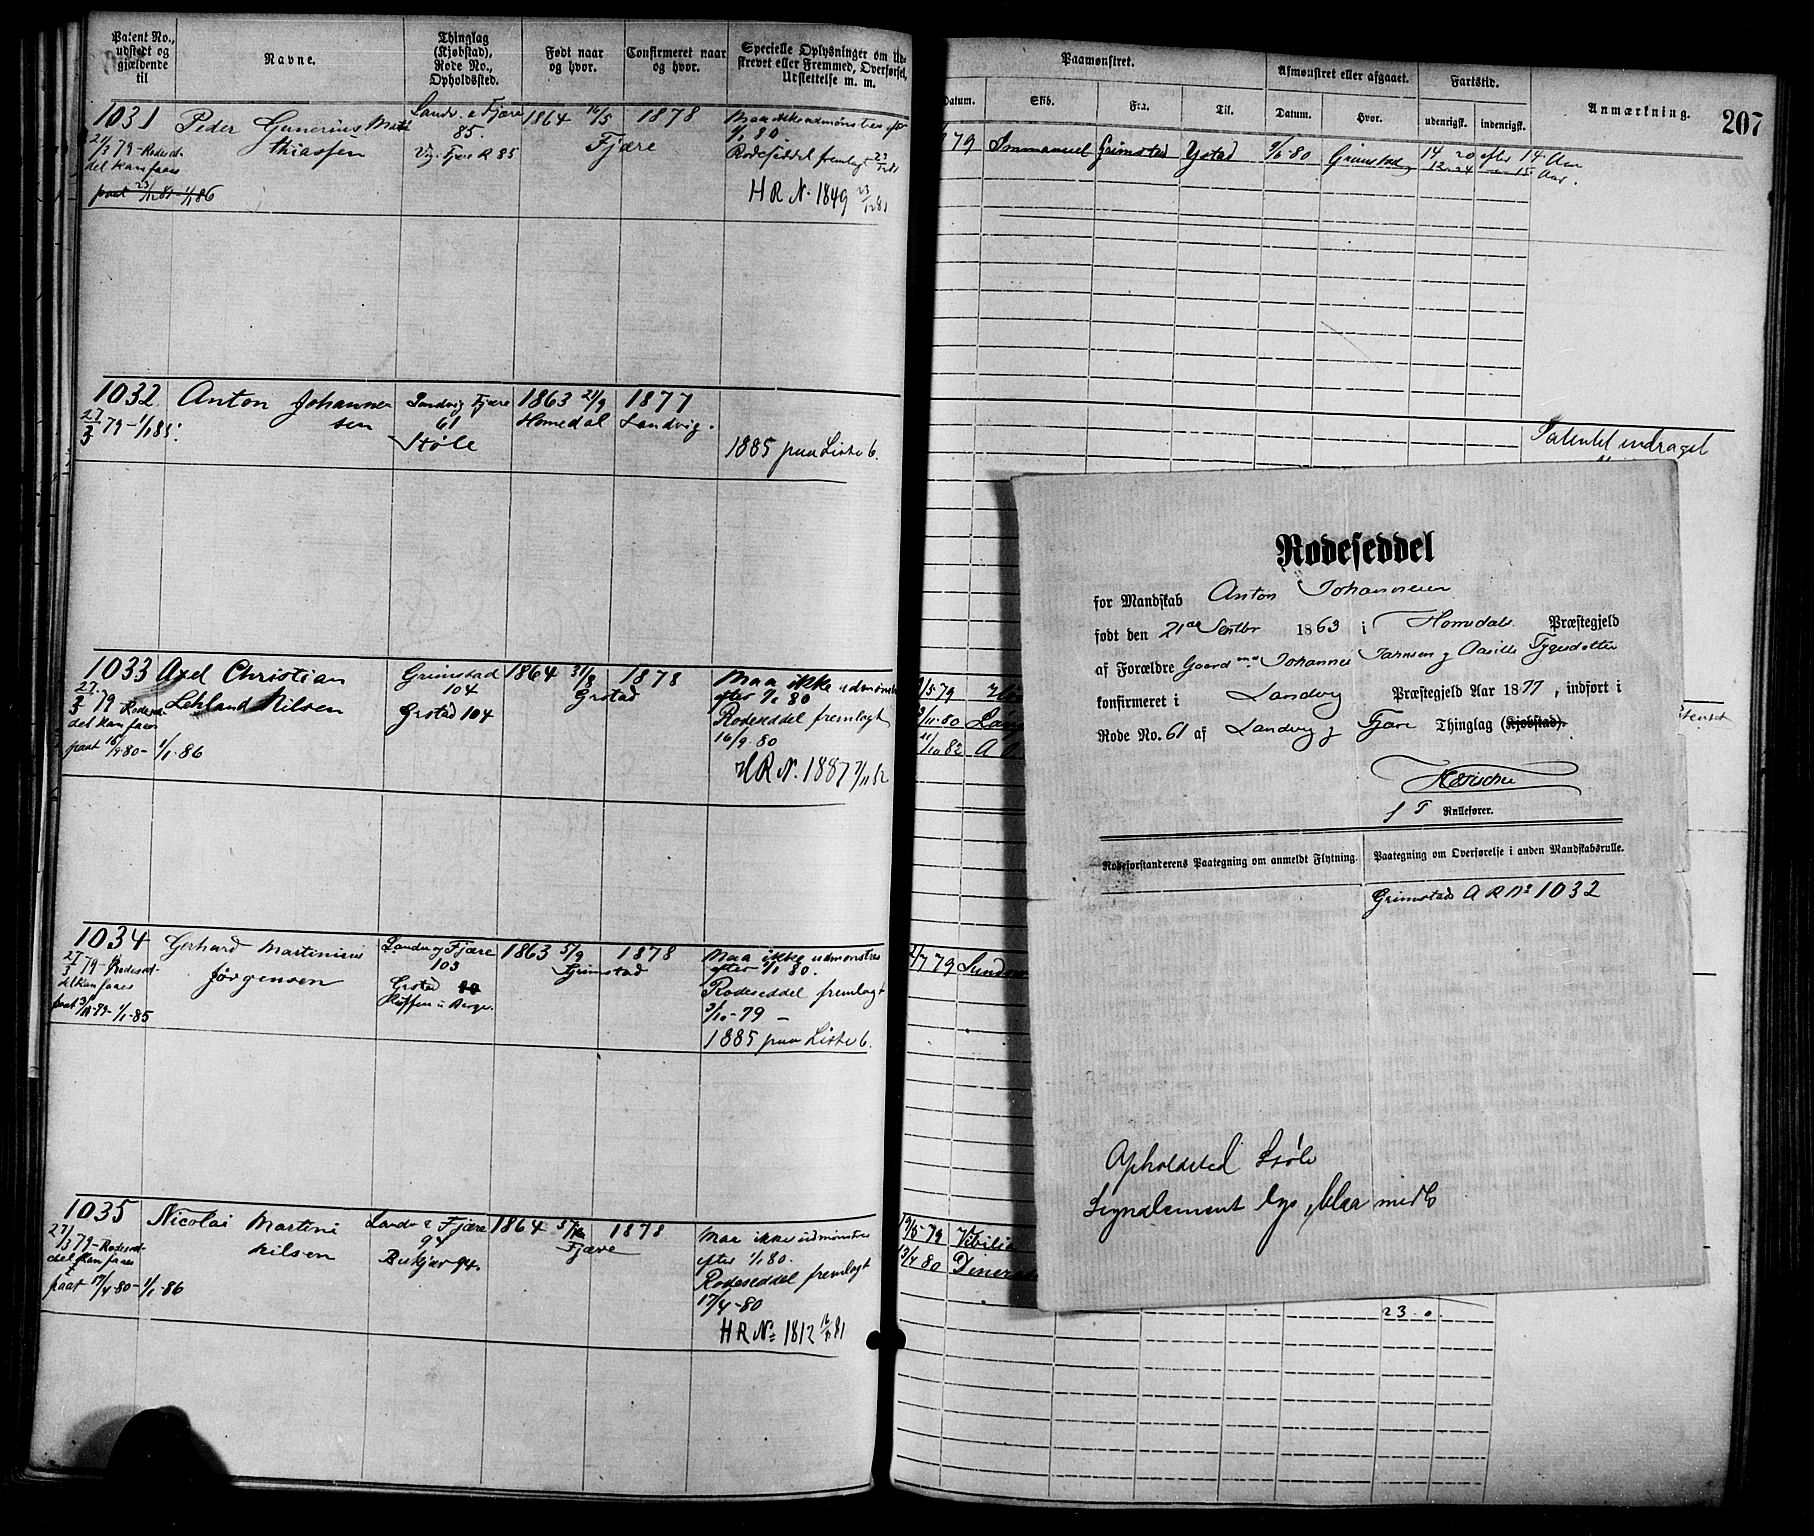 Patent No.,
udstedt og
gjældende
til
Navne.
Thinglag
(Kjøbstad),
Rode No.,
Opholdssted.
Født naar
og hvor.
Confirmeret naar
og hvor.
Specielle Oplysninger om Ud-
skrevet eller Fremmed, Overførsel,
Udslettelse m. m.
1031
21/3 79 - Rodesed-
del kan faaes
paat 23/12 81 - 1/1 86
Peder Gunerius Mat-
thiassen
Landv. o Fjære
85.
Vig. Fjære R 85
1864 16/5
Fjære
1878
Maa ikke udmønstres efter
1/1 80.
Rodeseddel fremlagt 23/12 81
H R N. 1849 23/12 81
1032
27/3 79 - 1/1 85.
Anton Johannes-
sen
Landvig Fjære
61
Støle
1863 21/9
Homedal
1877
Landvig.
1885 paa Liste 6.
1033
27/3 79 Rodesed-
del kan faaes
paat 16/9 80 - 1/1 86
Axel Christian
Nilsen
Grimstad
104
Grstad 104
1864 31/8
Grstad
1878
Maa ikke udmønstres
efter 1/1 80
Rodeseddel fremlagt
16/9 80
H R N. 1887 7/11 82
1034
27/3 79 - Rodesed-
del kan faaes
paat 3/10 79 - 1/1 85
Gerhard Martinius
Jørgensen
Landv og Fjære
103
Grstad
1863 5/9
Grimstad
1878
Maa ikke udmønstres
efter 1/1 80.
Rodeseddel fremlagt
3/10 - 79 -
1885 paa Liste 6.
1035
27/3 79 - Rodesed-
del kan faaes
paat 17/4 80 - 1/1 86
Nicolai Martini
Nilsen
Landv o Fjære
94
94.
1864
Fjære
1878
Maa ikke udmønstres
efter 1/1 80.
Rodeseddel fremlagt
17/4 - 80
H R No 1812 81
Paamønstret.
Afmønstret eller afgaaet.
Fartstid.
Anmærkning.
207
Datum.
Skib.
Fra.
Til.
Datum.
Hvor.
udenrigsk.
indenrigsk.
79 Immanuel Grimstad Ystad 9/6 80 Grimstad 14 20 efter 14 Aar
12 - 24 15 Aar.
Patentet inddraget
5 79
11 80 Lang
11/10 82 A
2/7 79
19/5 79 Vibilia
13/4 80
23 0
Rodeseddel
for Mandskab Anton Johannesen
født den 21de Septbr 1863 i Homedals Præstegjeld
af Forældre Gaardmd Johannes
konfirmeret i Landvig Præstegjeld Aar 1877, indført i
Rode No. 61 af Landvig og Fjære Thinglag (Kjøbstad).
Rullefører.
Rodeforstanderens Paategning om anmeldt Flytning.
Paategning om Overførelse i anden Mandskabsrulle.
Grimstad A R No 1032
Opholdsted Støle
Signalement lys, blaa